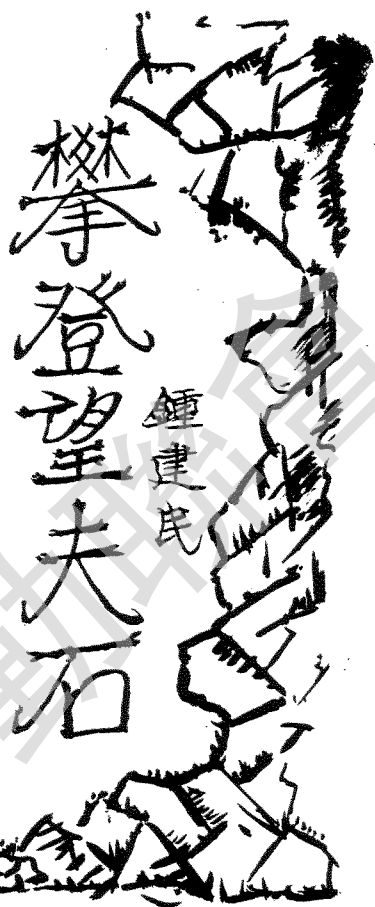 攀登望夫石
鍾建民